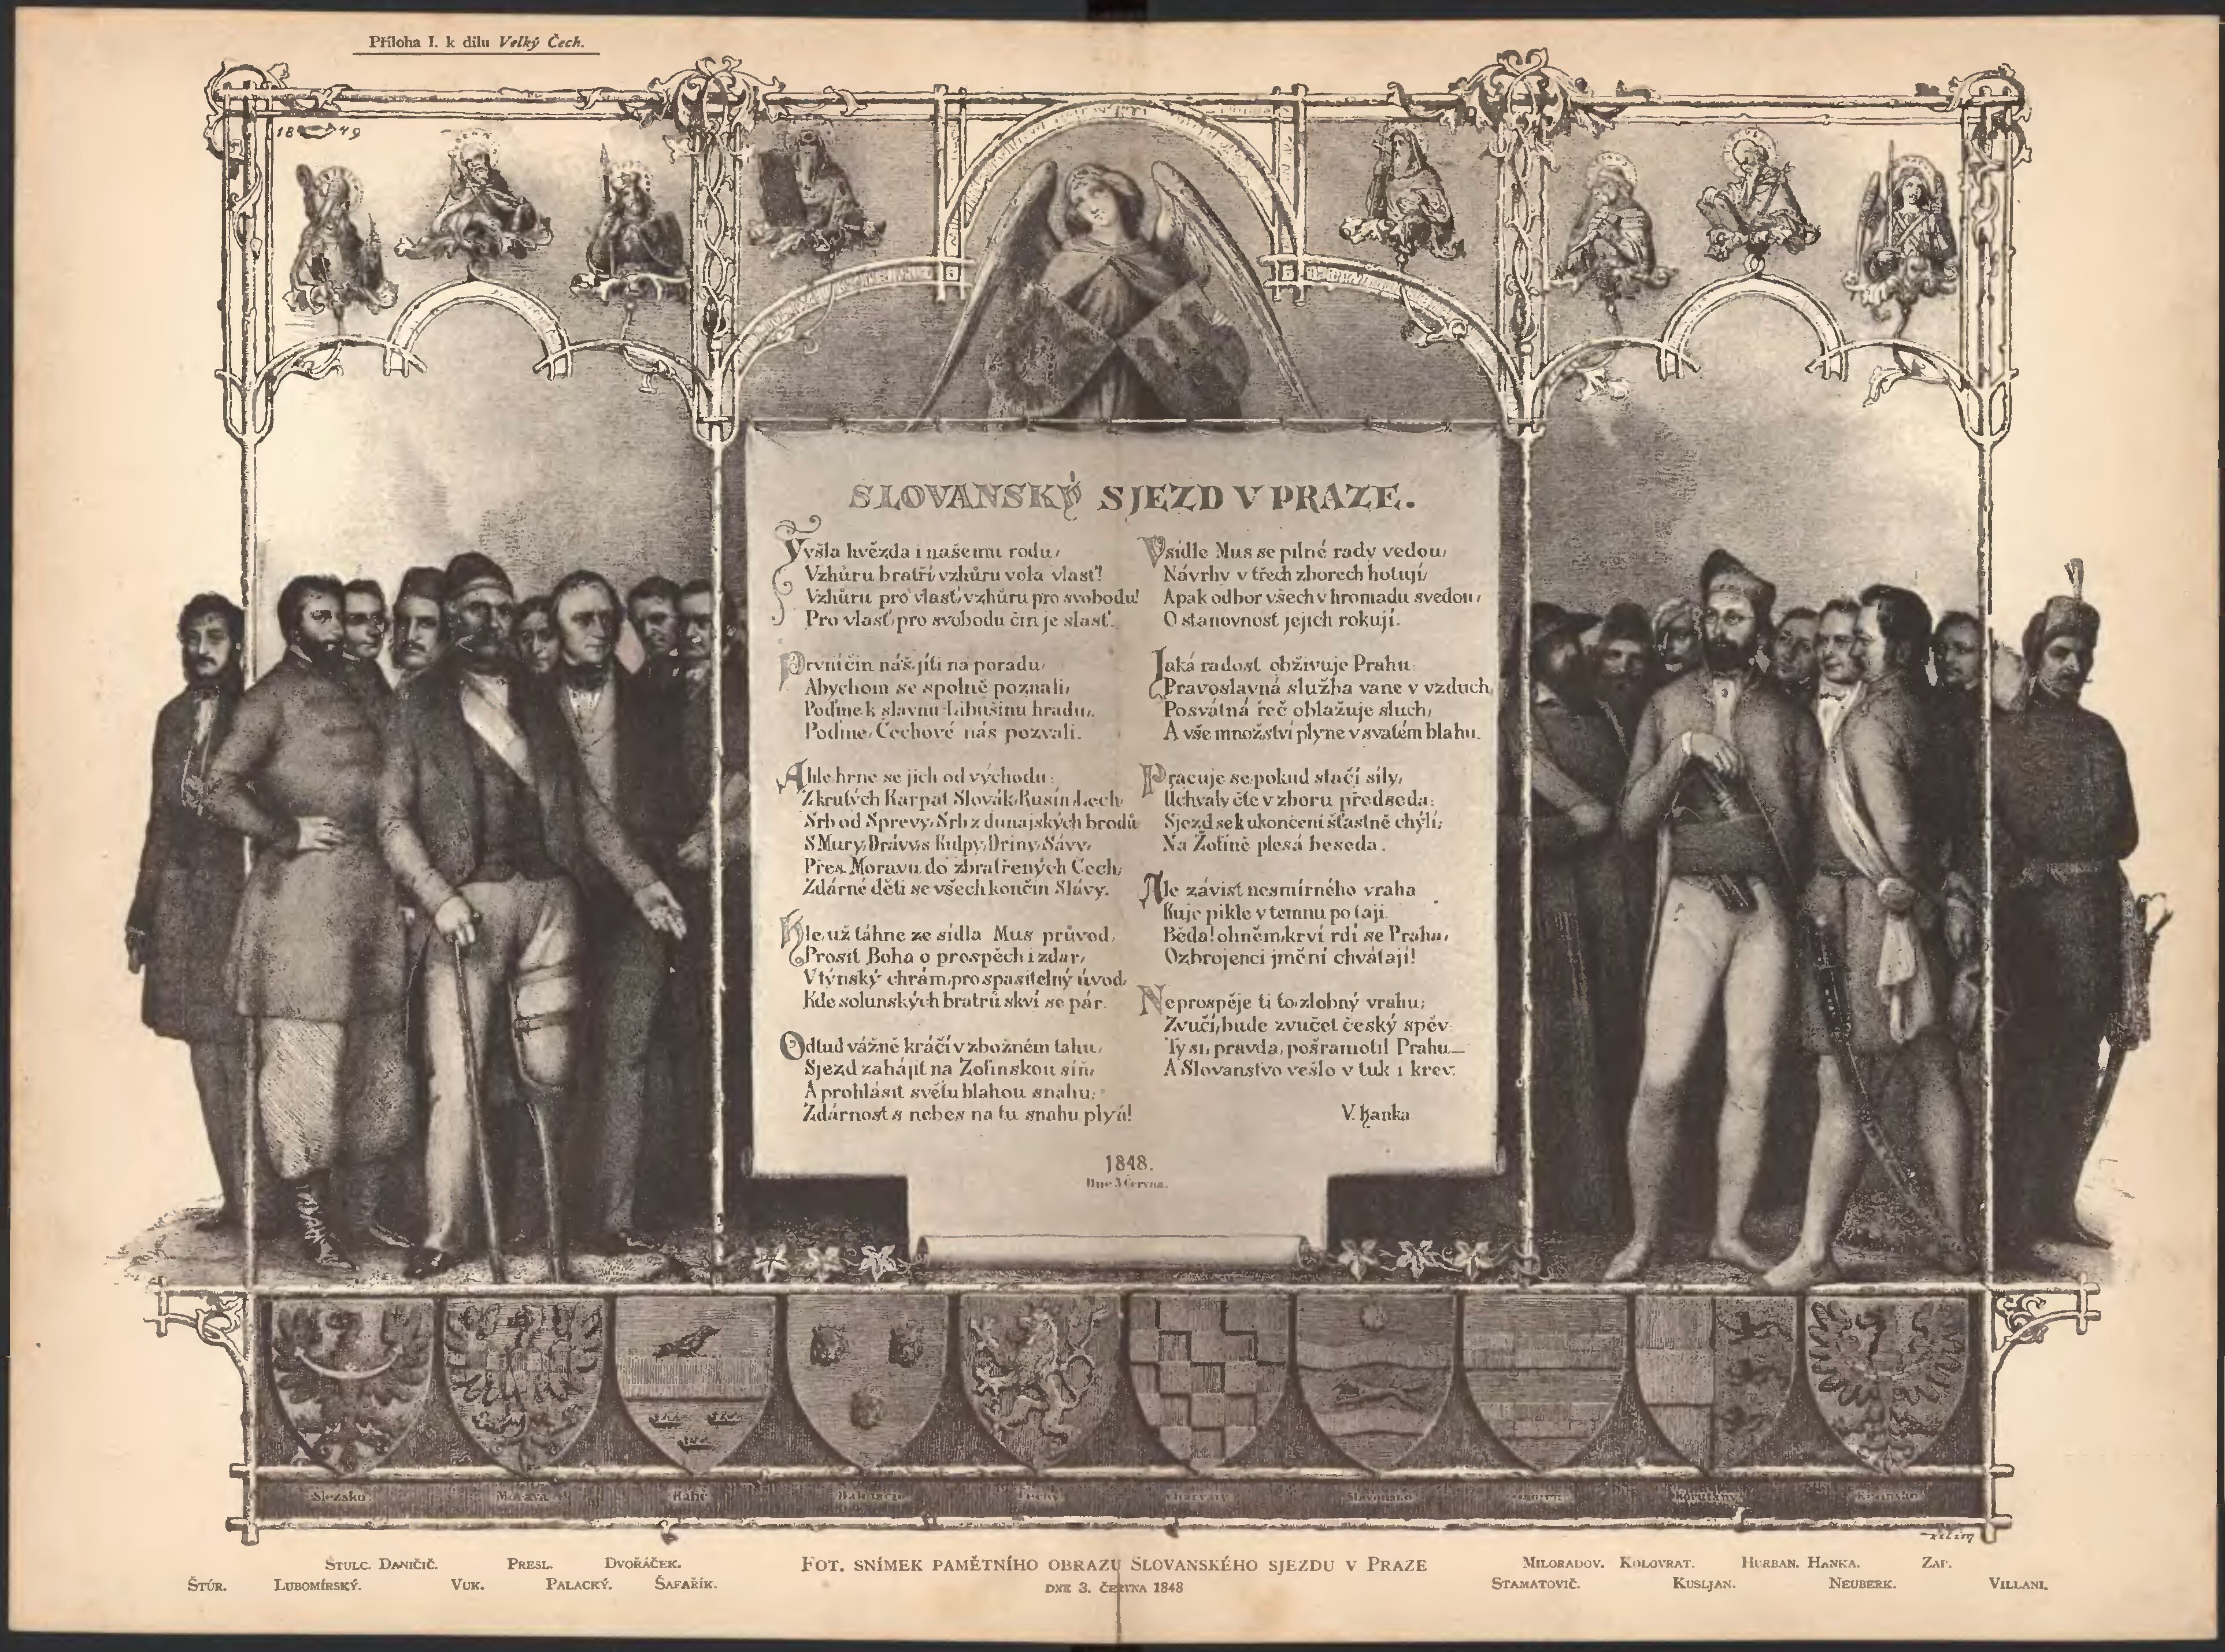 Příloha I. k dílu Velký Čech.
1849
SLOVANSKÝ SJEZD V PRAZE.
Vyšla hvězda i našemu rodu,
Vzhůru bratří vzhůru volá vlasť!
Vzhůru pro vlasť, vzhůru pro svobodu!
Pro vlasť, pro svobodu čin je slasť.
První čin náš, jíti na poradu,
Abychom se spolně poznali,
Poďme k slavnu Libušinu hradu,
Poďme, Čechové nás pozvali.
Ahle hrne se jich od východu:
Z krutých Karpat Slovák, Rusín, Lech,
Srb od Sprevy, Srb z dunajských brodů
S Mury, Drávy, s Kulpy, Driny, Sávy,
Přes Moravu do zbratřených Čech,
Zdárné děti se všech končin Slávy.
Hle, už táhne ze sídla Mus průvod,
Prosit Boha o prospěch i zdar,
V týnský chrám, pro spasitelný úvod,
Kde solunských bratrů skví se pár.
Odtud vážně kráčí v zbožném tahu,
Sjezd zahájit na Žofínskou síň,
A prohlásit světu blahou snahu;
Zdárnost s nebes na tu snahu plyň!
V sídle Mus se pilné rady vedou,
Návrhy v třech zborech hotují,
A pak odbor všech v hromadu svedou,
O stanovnosť jejich rokují.
Jaká radost obživuje Prahu
Pravoslavná služba vane v vzduch,
Posvátná řeč oblažuje sluch,
A vše množství plyne v svatém blahu.
Pracuje se, pokud stačí síly,
Uchvaly čte v zboru předseda:
Sjezd se k ukončení šťastně chýlí,
Na Žofíně plesá beseda.
Ale závist nesmírného vraha
Kuje pikle v temnu potají.
Běda! ohněm, krví rdí se Praha,
Ozbrojenci jmění chvátají!
Neprospěje ti to, zlobný vrahu;
Zvučí, bude zvučet český spěv
Ty si, pravda, pošramotil Prahu—
A Slovanstvo vešlo v tuk i krev.
V. Hanka
1848.
Dne 3 Června.
Slezsko.
Morava
Halič
Čechy
Charvaty
Slavonsko
Korutany
Krainsko
ŠTULC. DANIČIČ. PRESL. DVOŘÁČEK.
ŠTÚR. LUBOMÍRSKÝ. VUK. PALACKÝ. ŠAFAŘÍK.
FOT. SNÍMEK PAMĚTNÍHO OBRAZU SLOVANSKÉHO SJEZDU V PRAZE
DNE 3. ČERVNA 1848
MILORADOV. KOLOVRAT. HURBAN. HANKA. ZAP.
STAMATOVIČ. KUSLJAN. NEUBERK. VILLANI.